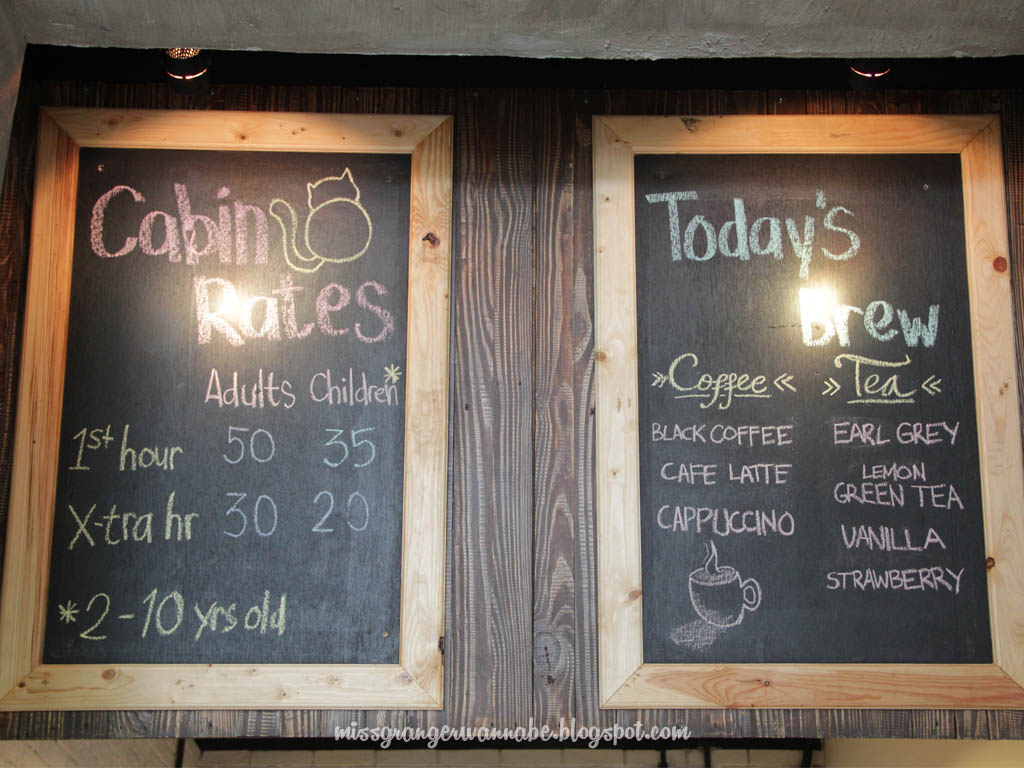 Cabin
Rates
Adults Children*
1st hour 50 35
X-tra hr 30 20
*2-10 yrs old
Today's
Brew
»Coffee«
BLACK COFFEE
CAFE LATTE
CAPPUCCINO
»Tea«
EARL GREY
LEMON
GREEN TEA
VANILLA
STRAWBERRY
missgrangerwannabe.blogspot.com